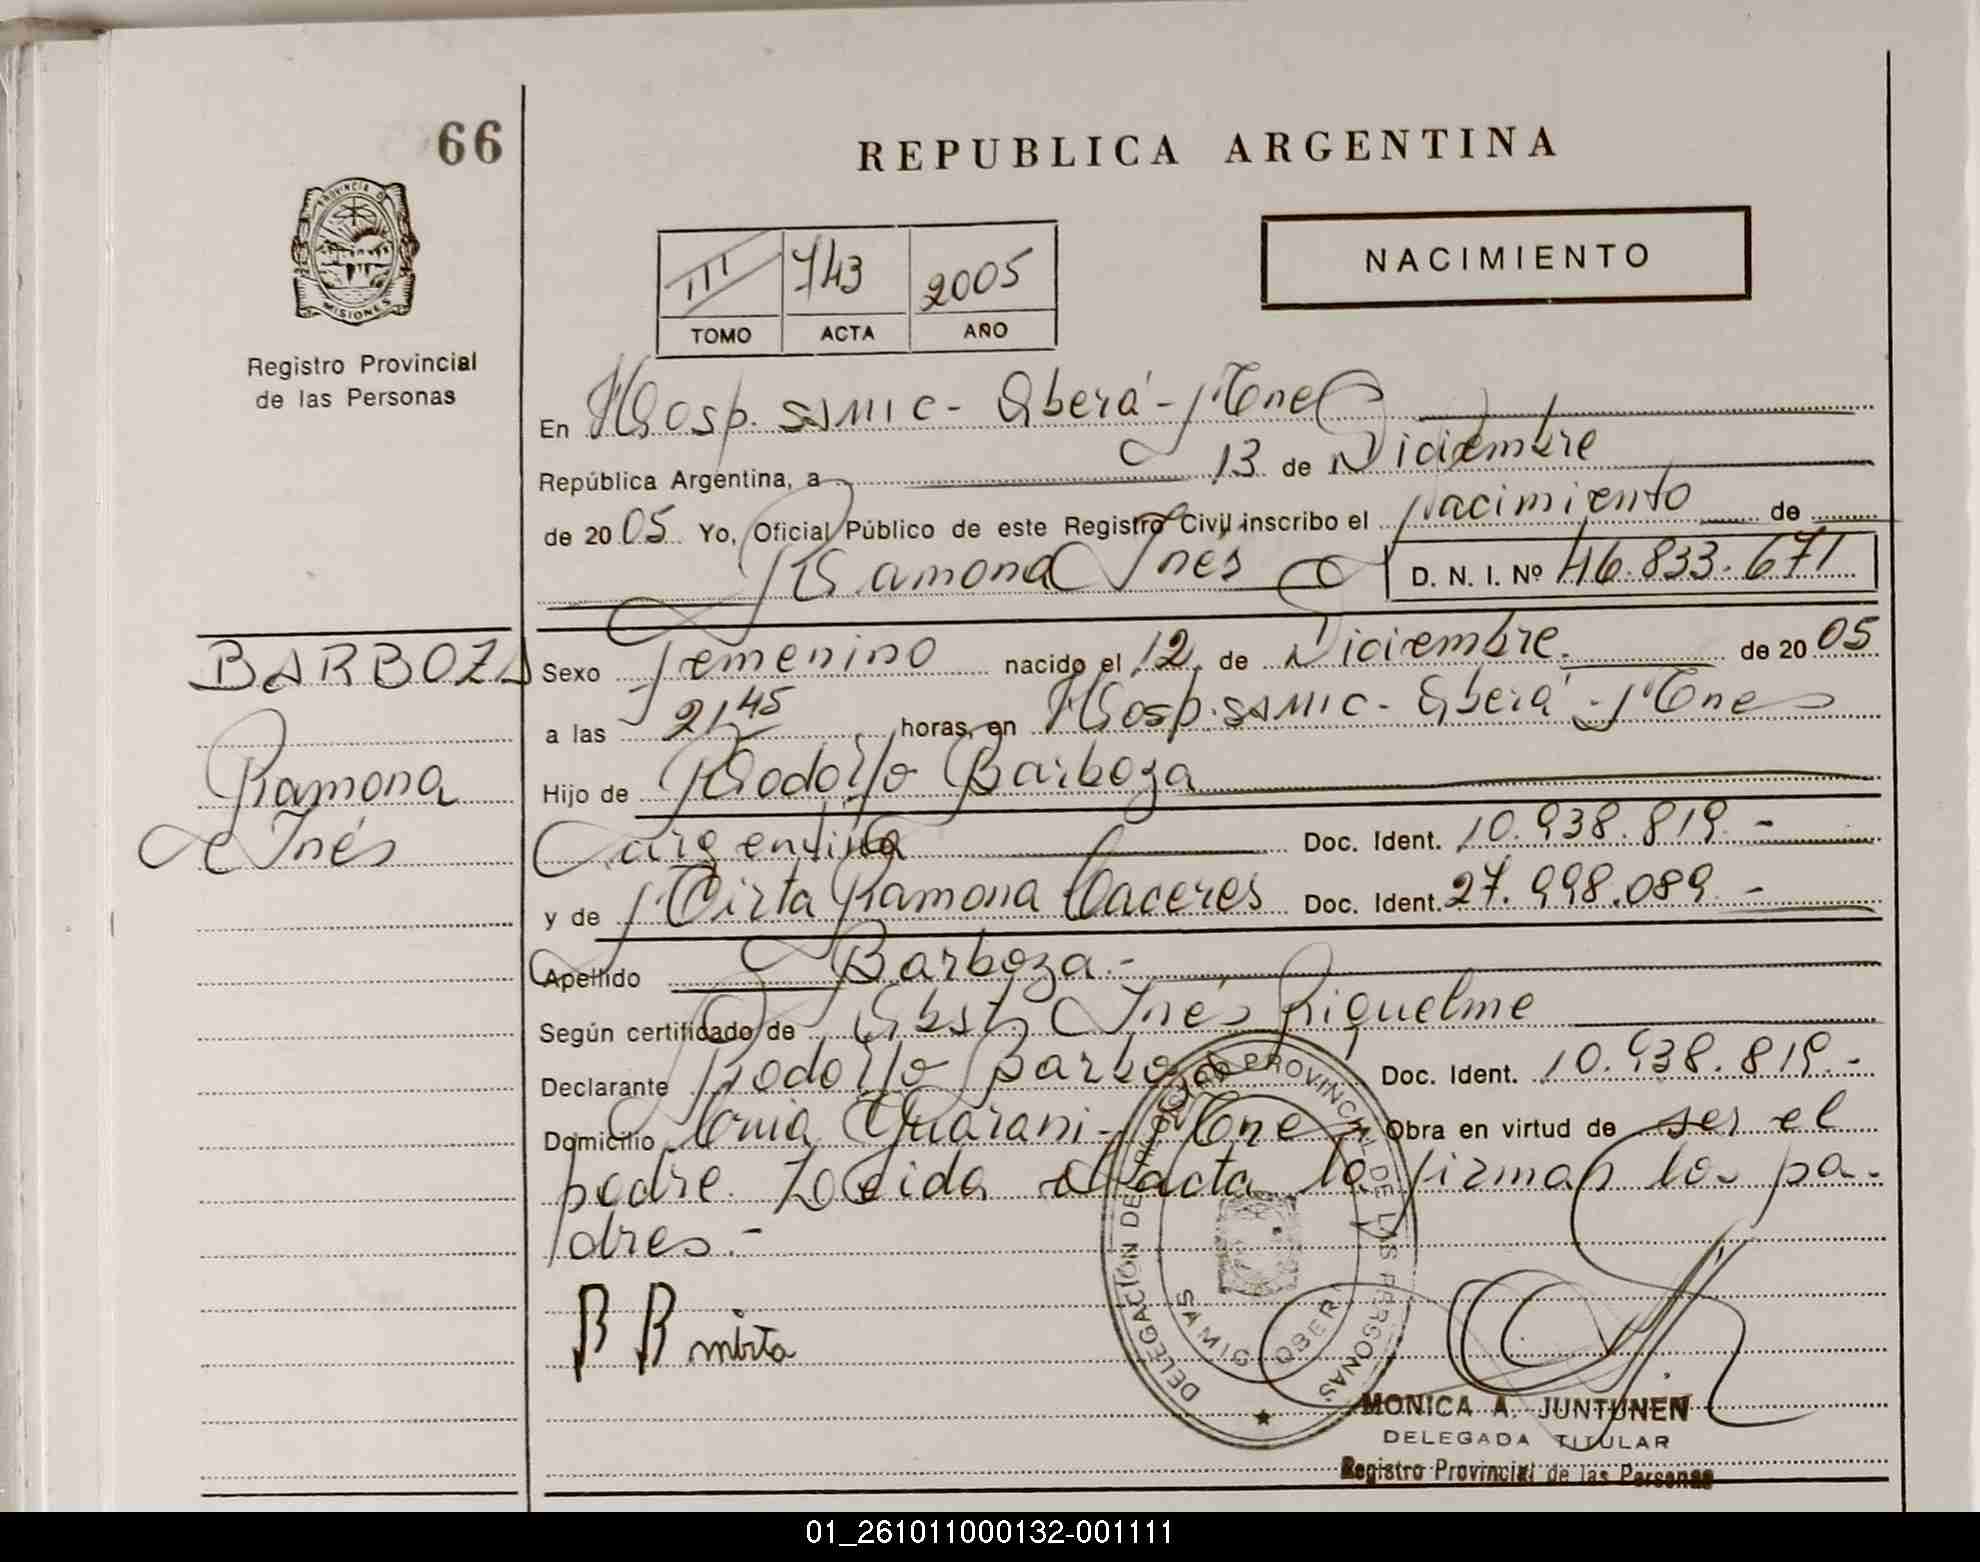 66
REPUBLICA ARGENTINA
PROVINCIA D
MISIONES
Registro Provincial
de las Personas
III 743 2005
TOMO ACTA AÑO
NACIMIENTO
En Hosp. SAMIC - Oberá - Mnes
República Argentina, a 13 de Diciembre
de 2005 Yo, Oficial Público de este Registro Civil inscribo el nacimiento de
Ramona Inés D. N. I. Nº 46.833.671
BARBOZA
Ramona
Inés
Sexo femenino nacido el 12 de Diciembre. de 2005
a las 21,45 horas, en Hosp. SAMIC - Oberá - Mnes
Hijo de Rodolfo Barboza
argentina Doc. Ident. 10.938.819.-
y de Mirta Ramona Caceres Doc. Ident. 27.998.089.-
Apellido Barboza.-
Según certificado de Obst. Inés Riquelme
Declarante Rodolfo Barboza Doc. Ident. 10.938.819.-
Domicilio Guarani - Mnes Obra en virtud de ser el
padre. Leida el acta la firman los pa-
dres.-
B B mirta
DELEGACION DEL REGISTRO PROVINCIAL DE LAS PERSONAS
SAMIC OBERA
MONICA A. JUNTUNEN
DELEGADA TITULAR
Registro Provincial de las Personas
01_261011000132-001111